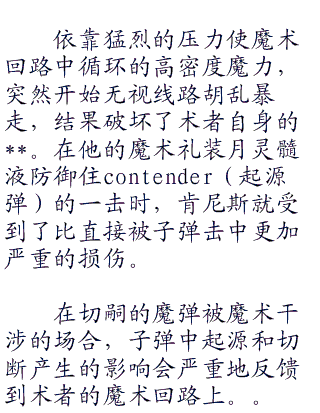 依靠猛烈的压力使魔术
回路中循环的高密度魔力，
突然开始无视线路胡乱暴
走，结果破坏了术者自身的
**。在他的魔术礼装月灵髓
液防御住contender（起源
弹）的一击时，肯尼斯就受
到了比直接被子弹击中更加
严重的损伤。
在切嗣的魔弹被魔术干
涉的场合，子弹中起源和切
断产生的影响会严重地反馈
到术者的魔术回路上。。